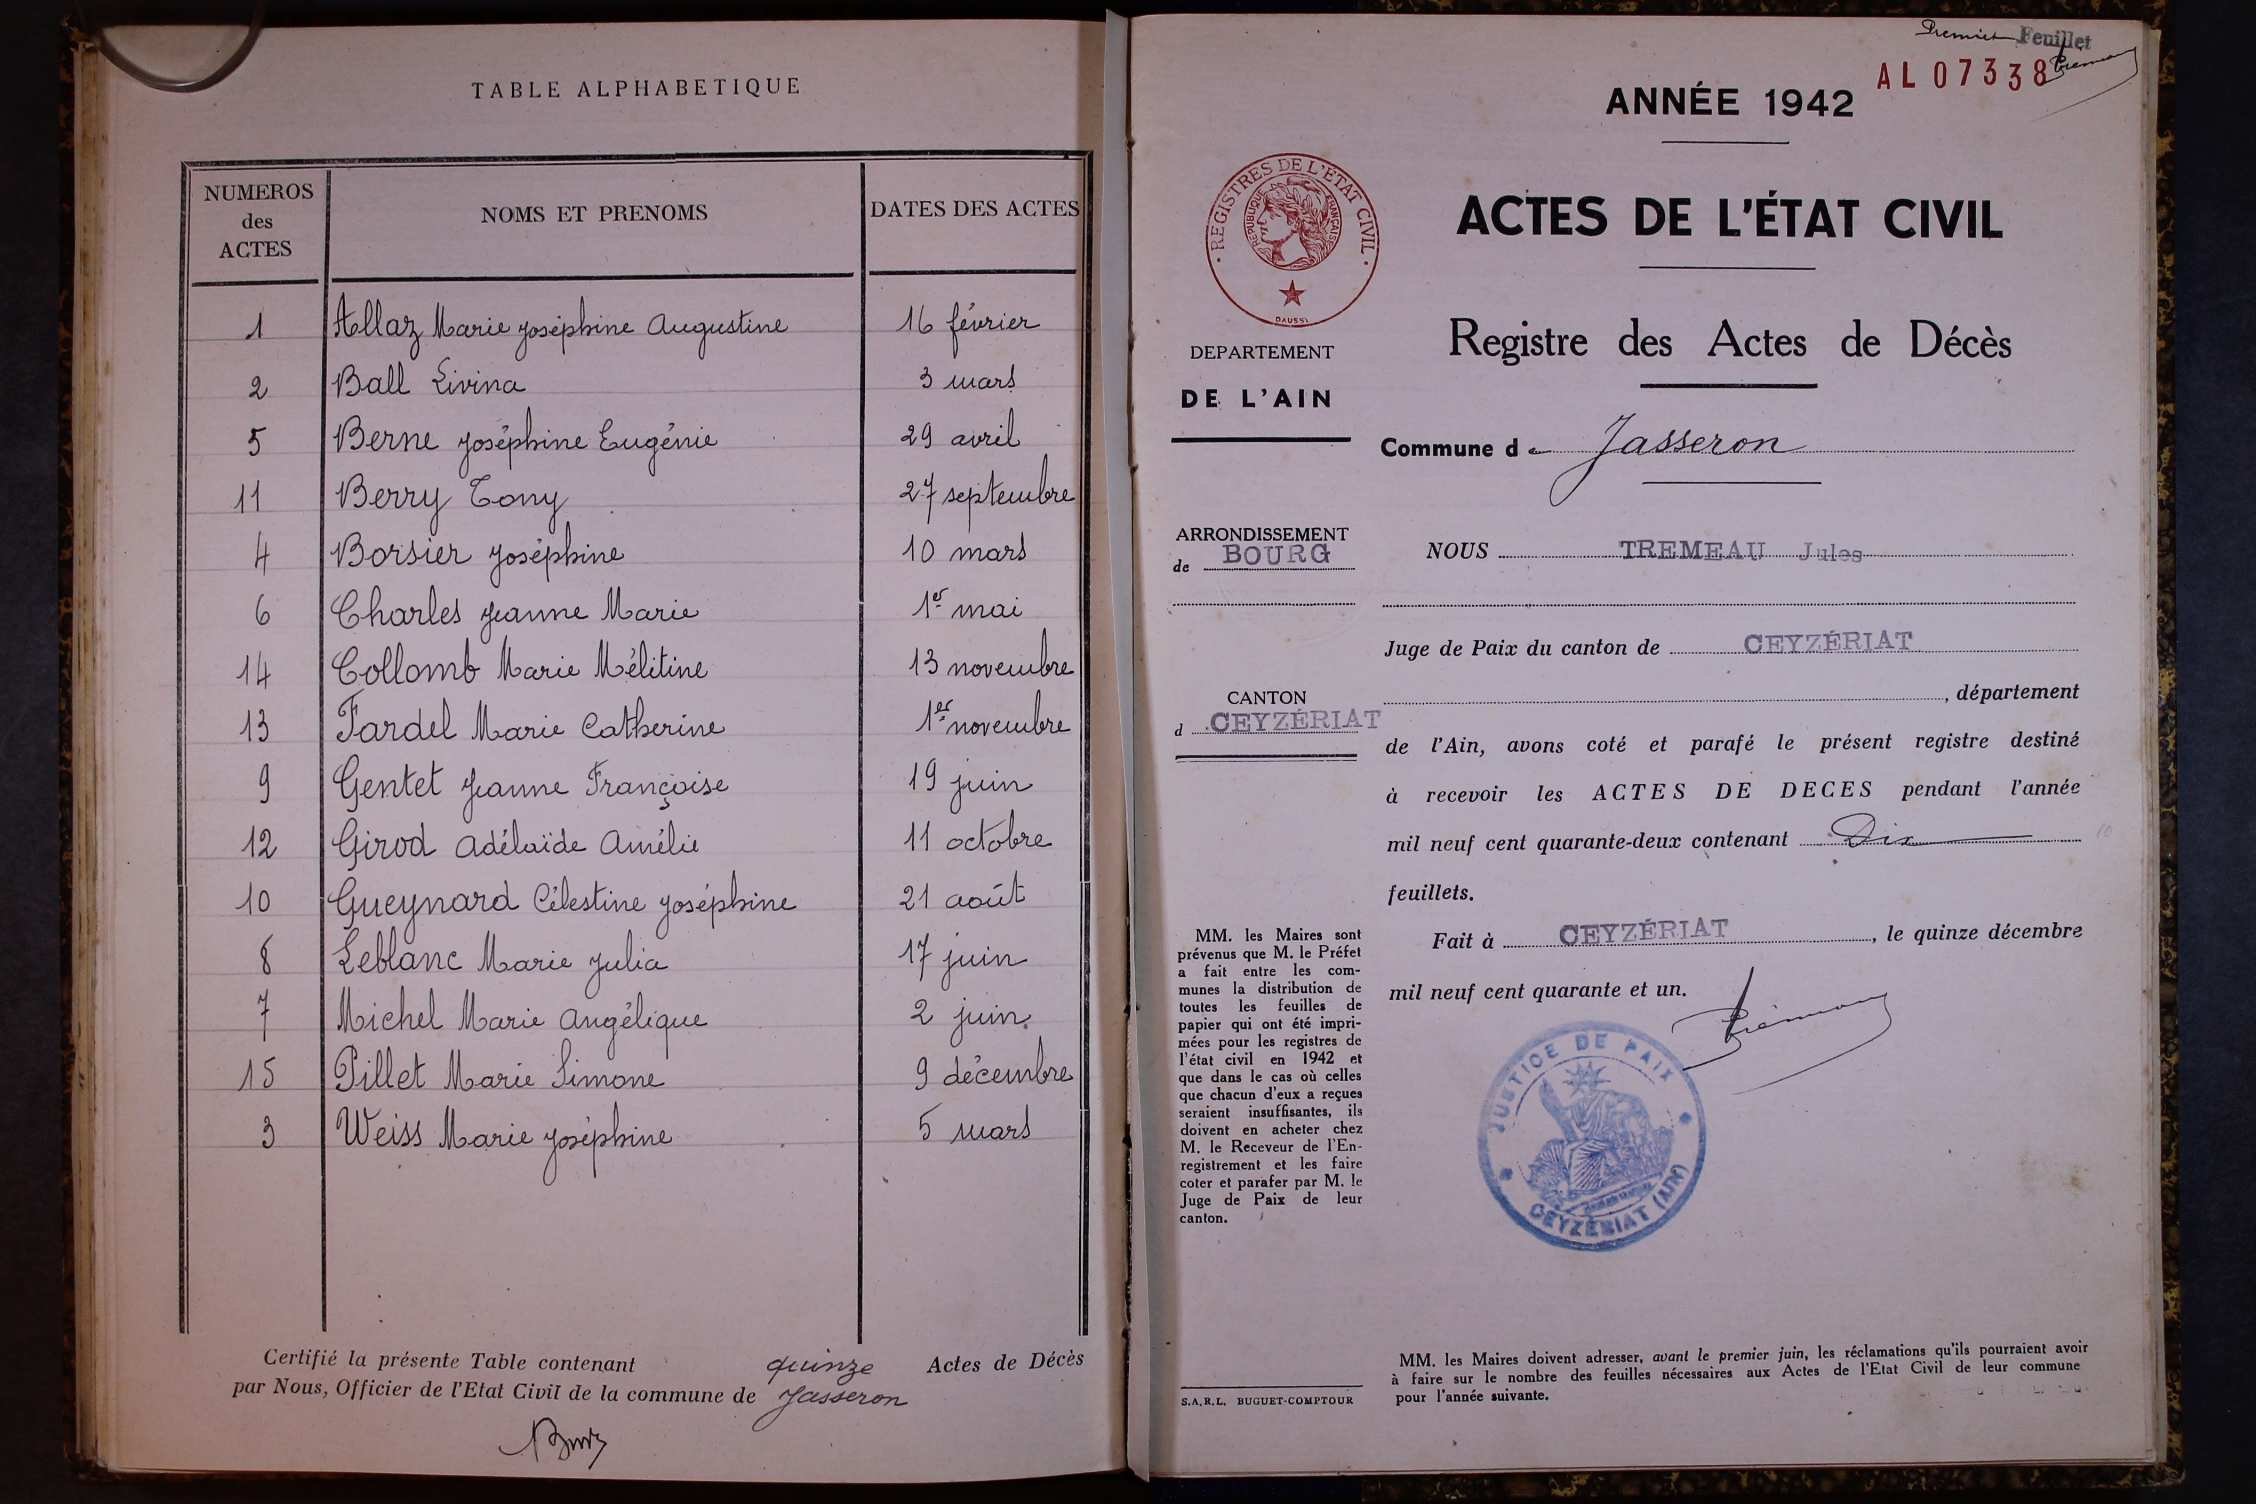 TABLE ALPHABETIQUE
NUMEROS des ACTES NOMS ET PRENOMS DATES DES ACTES
1 Allaz Marie Joséphine Augustine 16 février
2 Ball Livina 3 mars
5 Berne Joséphine Eugénie 29 avril
11 Berry Tony 27 septembre
4 Borsier Joséphine 10 mars
6 Charles Jeanne Marie 1er mai
14 Collomb Marie Mélitine 13 novembre
13 Fardel Marie Catherine 1er novembre
9 Gentet Jeanne Françoise 19 juin
12 Girod Adélaïde Amélie 11 octobre
10 Gueynard Célestine Joséphine 21 août
8 Leblanc Marie Julia 17 juin
7 Michel Marie Angélique 2 juin
15 Pillet Marie Simone 9 décembre
3 Weiss Marie Joséphine 5 mars
Certifié la présente Table contenant quinze Actes de Décès
par Nous, Officier de l'Etat Civil de la commune de Jasseron
Premier Feuillet
AL 07338
ANNÉE 1942
REGISTRES DE L'ETAT CIVIL
REPUBLIQUE FRANÇAISE
DAUSSY
ACTES DE L'ÉTAT CIVIL
Registre des Actes de Décès
DEPARTEMENT
DE L'AIN
Commune de Jasseron
ARRONDISSEMENT
de BOURG
NOUS TREMEAU Jules
Juge de Paix du canton de CEYZÉRIAT
, département
CANTON
d CEYZÉRIAT
de l'Ain, avons coté et parafé le présent registre destiné
à recevoir les ACTES DE DECES pendant l'année
mil neuf cent quarante-deux contenant Dix 10
feuillets.
Fait à CEYZÉRIAT, le quinze décembre
mil neuf cent quarante et un.
JUSTICE DE PAIX
CEYZÉRIAT (AIN)
MM. les Maires sont
prévenus que M. le Préfet
a fait entre les com-
munes la distribution de
toutes les feuilles de
papier qui ont été impri-
mées pour les registres de
l'état civil en 1942 et
que dans le cas où celles
que chacun d'eux a reçues
seraient insuffisantes, ils
doivent en acheter chez
M. le Receveur de l'En-
registrement et les faire
coter et parafer par M. le
Juge de Paix de leur
canton.
S.A.R.L. BUGUET-COMPTOUR
MM. les Maires doivent adresser, avant le premier juin, les réclamations qu'ils pourraient avoir
à faire sur le nombre des feuilles nécessaires aux Actes de l'Etat Civil de leur commune
pour l'année suivante.